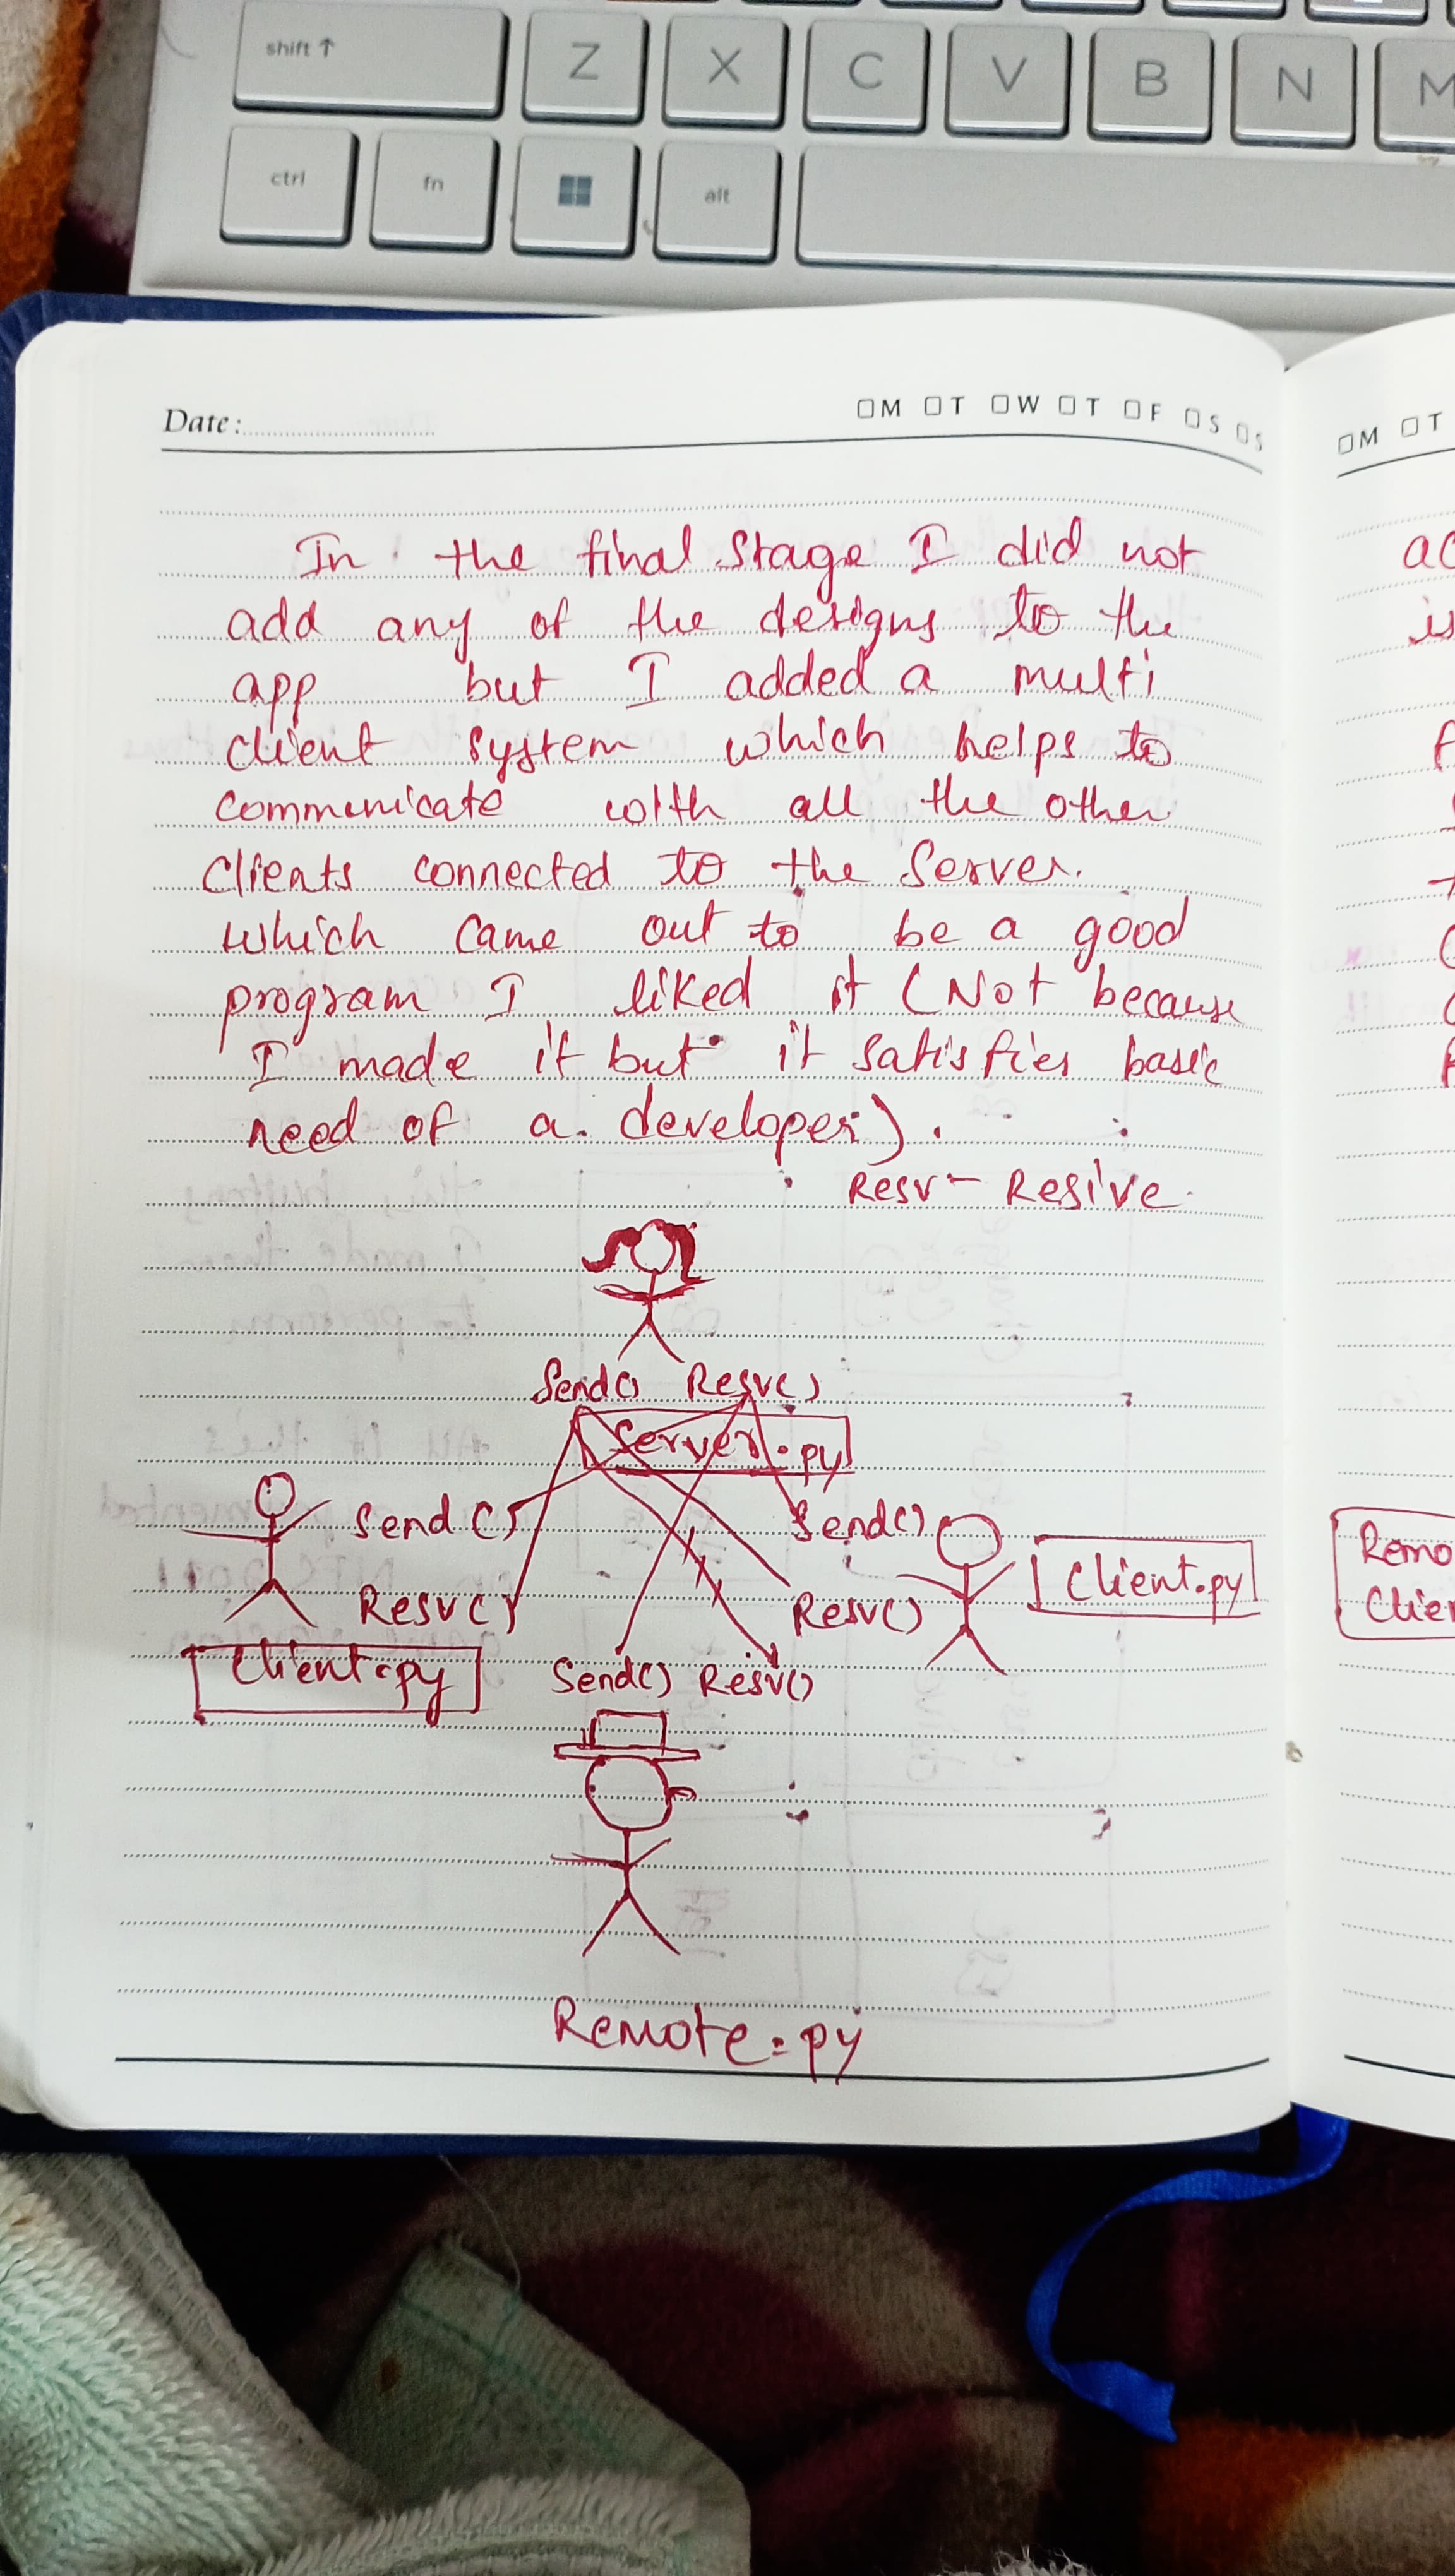 shift ↑ Z X C V B N M
ctrl fn alt
Date:
M T W T F S S
M T
In the final stage I did not
add any of the designs to the
app but I added a multi
client system which helps to
communicate with all the other
clients connected to the server.
which came out to be a good
program I liked it (Not because
I made it but it satisfies basic
need of a developer).
Resv - Resive
Send() Resv()
Server.py
Send() Send()
Client.py
Resv() Resv()
Client.py
Send() Resv()
Remote.py
ac
is
Remo
Clien